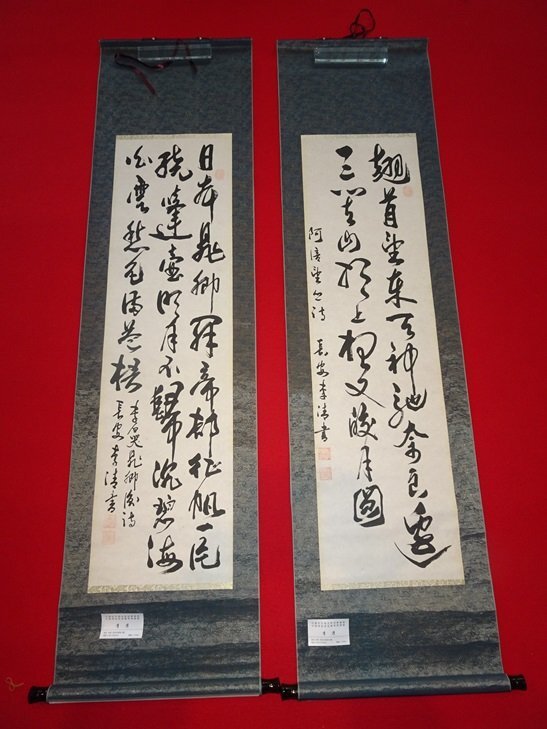 翹首望東天神馳奈良邊
三笠山頂上想又皎月圓
阿倍望乡诗 長安李清書
日本晁卿辞帝都征帆一片
繞蓬壺明月不歸沉碧海
白雲愁色滿蒼梧
李白哭晁卿衡诗
長安李清書
李清
李清